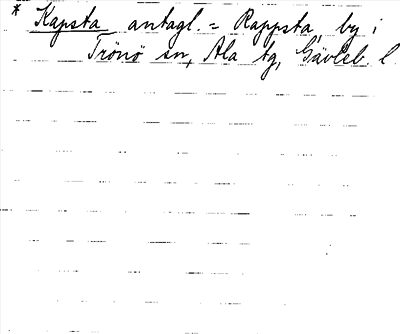 * Kapsta antagl. = Rappsta, by i
Trönö sn, Ala tg, Gävleb. l